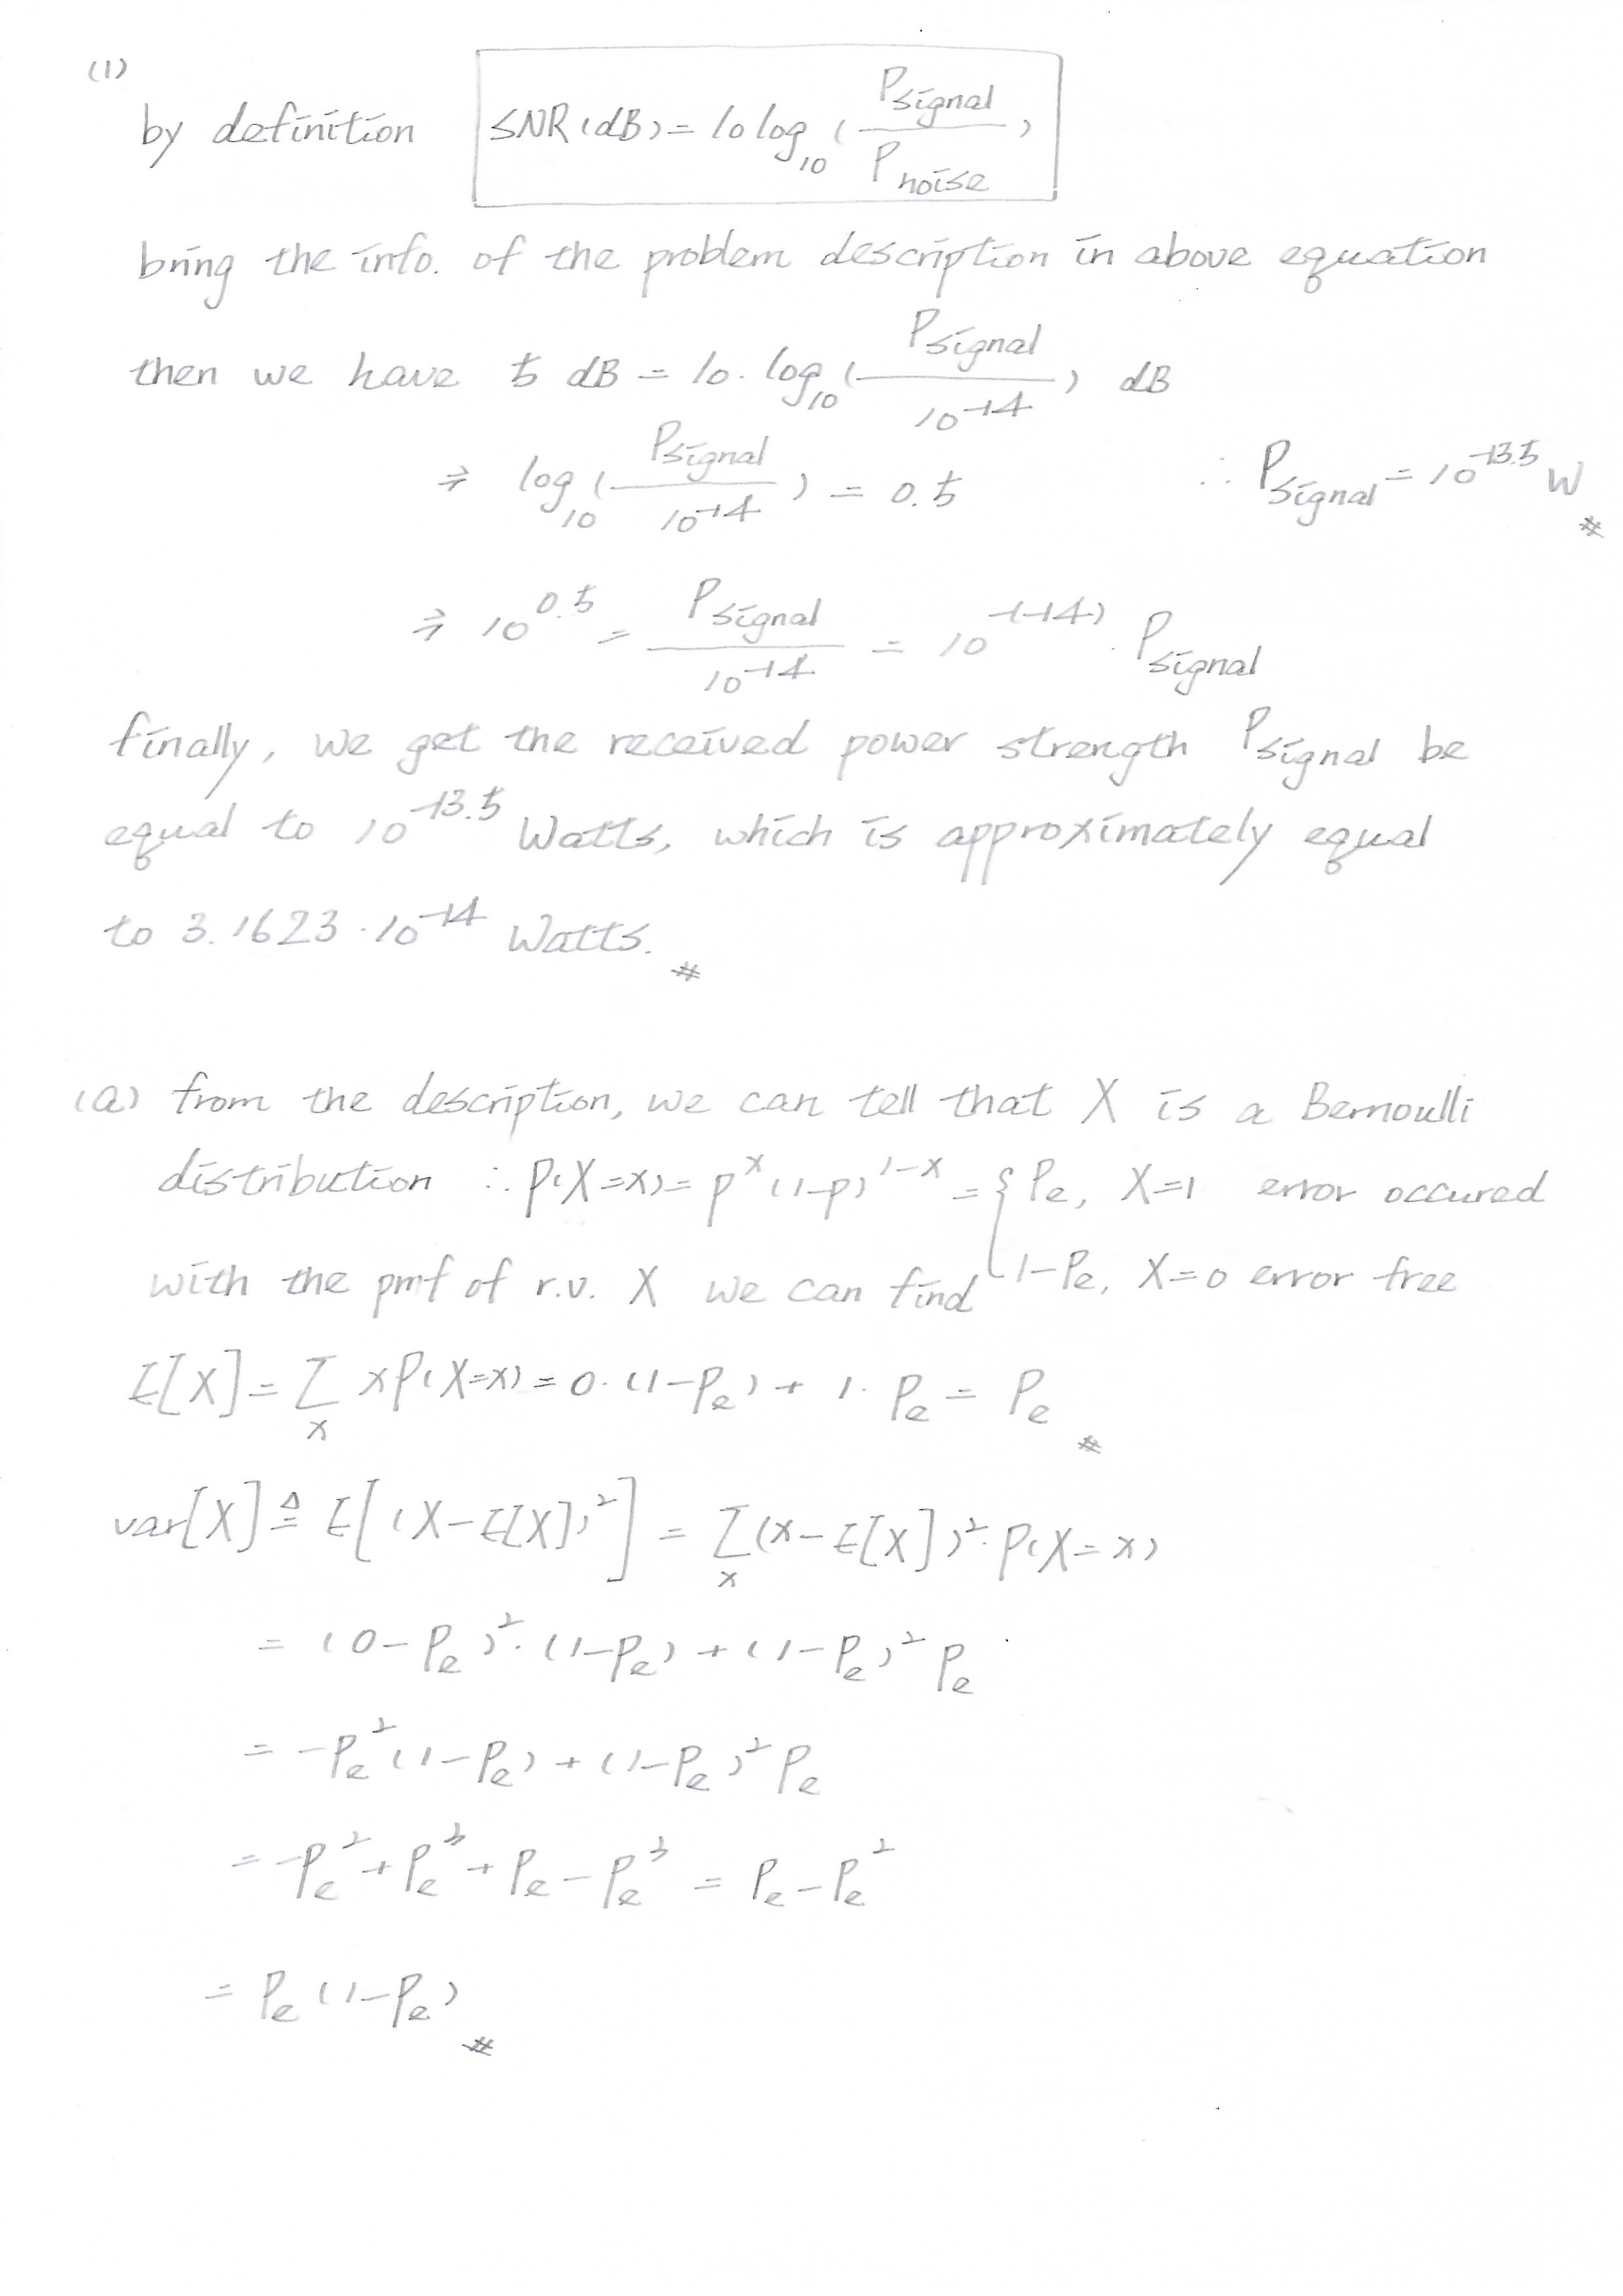 (1)
by definition SNR(dB) = 10 log₁₀ (P_signal / P_noise)
bring the info. of the problem description in above equation
then we have 5 dB = 10 · log₁₀ (P_signal / 10⁻¹⁴) dB
⇒ log₁₀ (P_signal / 10⁻¹⁴) = 0.5 ∴ P_signal = 10^-13.5 W #
⇒ 10^0.5 = P_signal / 10⁻¹⁴ = 10^-(-14) · P_signal
finally, we get the received power strength P_signal be
equal to 10^-13.5 Watts, which is approximately equal
to 3.1623 · 10⁻¹⁴ Watts. #
(a) from the description, we can tell that X is a Bernoulli
distribution ∴ P(X=x) = p^x (1-p)^1-x = { Pe, X=1 error occured
with the pmf of r.v. X we can find 1-Pe, X=0 error free
E[X] = Σ_x x P(X=x) = 0 · (1-Pe) + 1 · Pe = Pe #
var[X] ≜ E[(X-E[X])²] = Σ_x (x-E[X])² · P(X=x)
= (0-Pe)² · (1-Pe) + (1-Pe)² Pe
= -Pe² (1-Pe) + (1-Pe)² Pe
= -Pe² + Pe³ + Pe - Pe³ = Pe - Pe²
= Pe (1-Pe) #